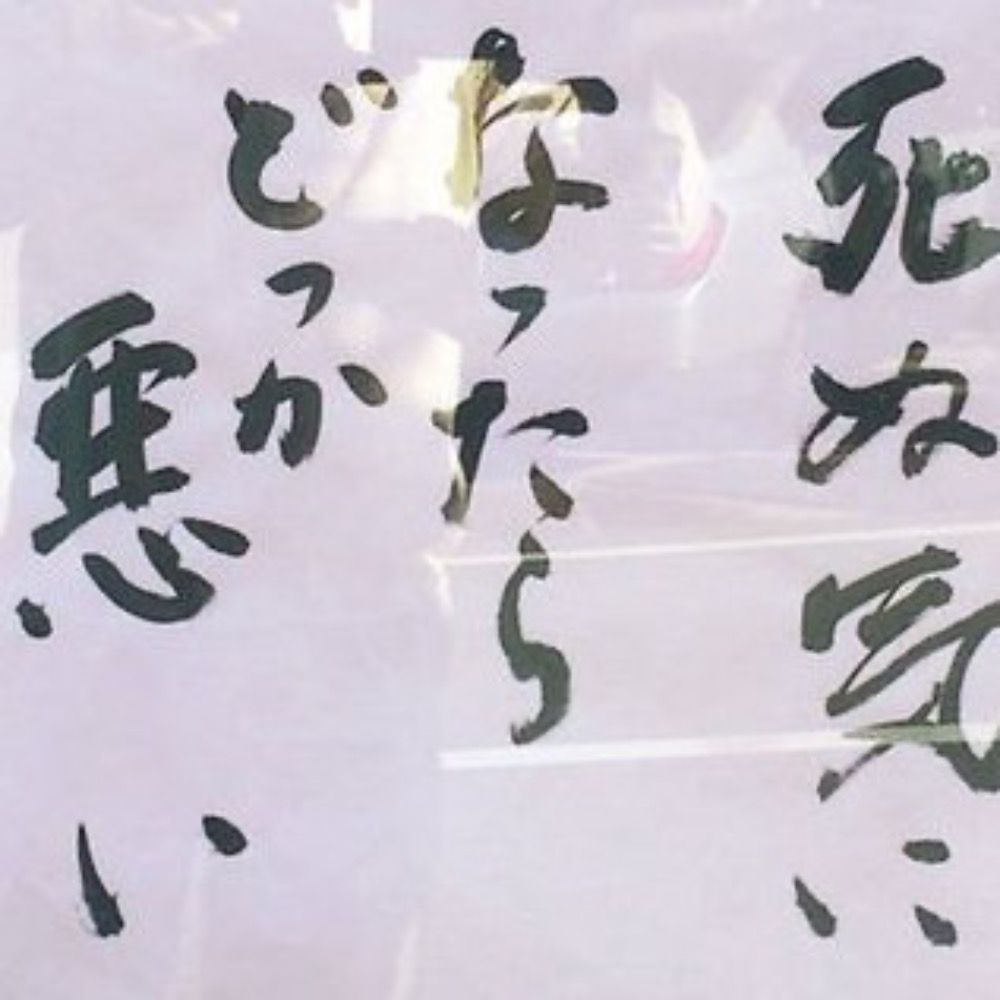 死ぬ気に
なったら
どっか
悪い